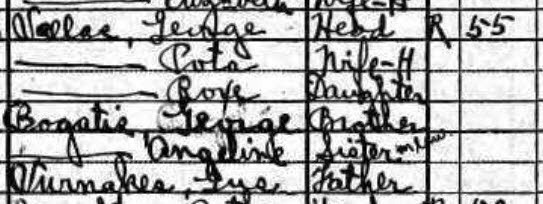 Vallas, George Head R 55
—— Pota Wife-H
—— Rose Daughter
Bogatis, George Brother
—— Angeline Sister in law
Vurnakes, Gus Father